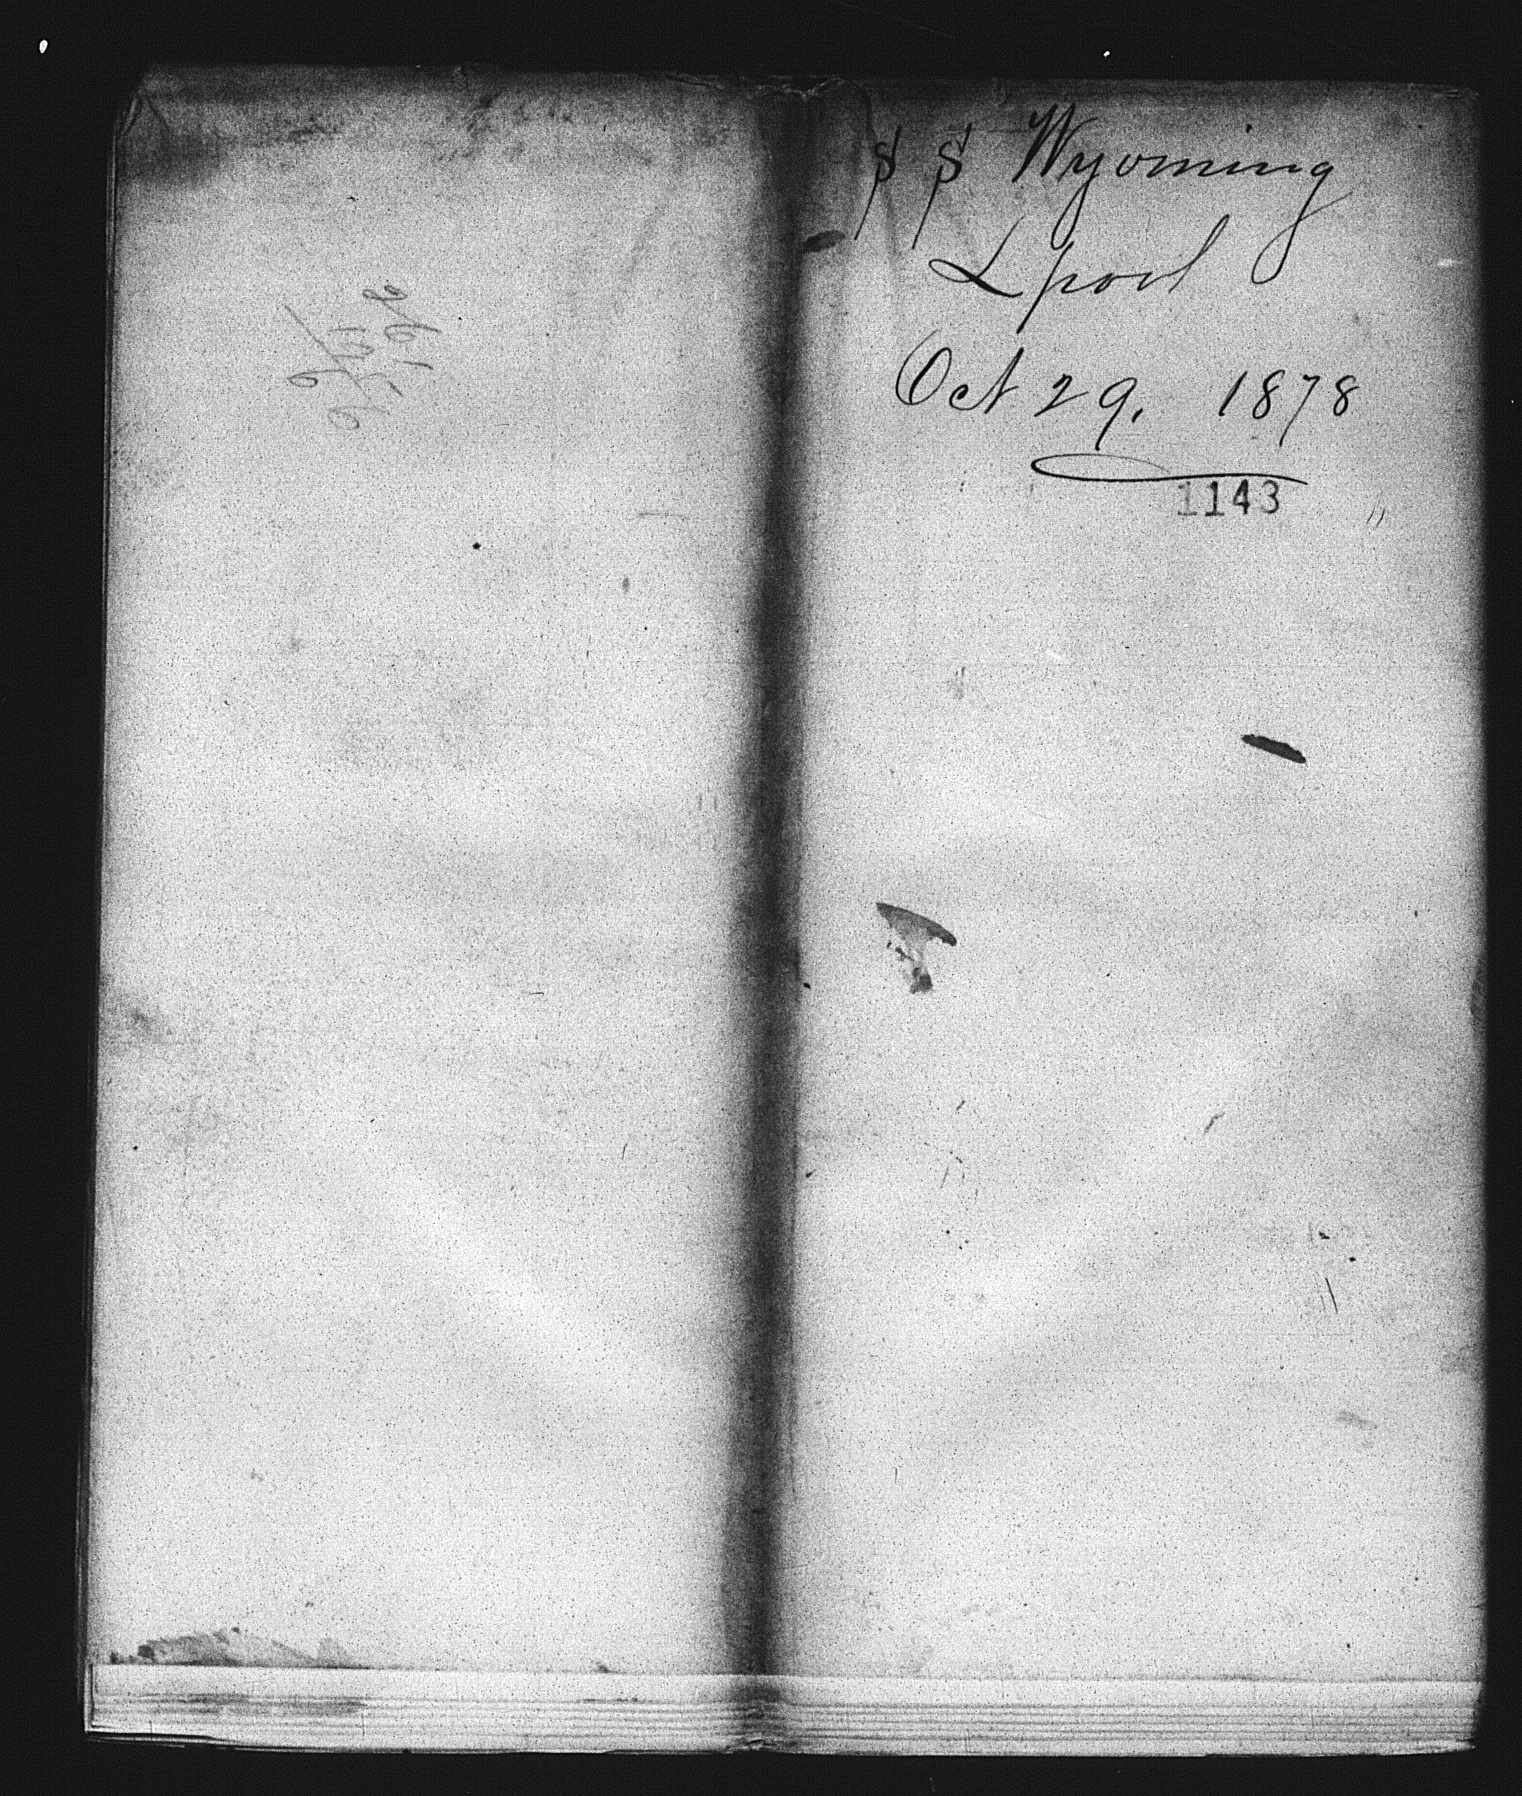 S S Wyoming
Lpool
Oct 29. 1878
1143